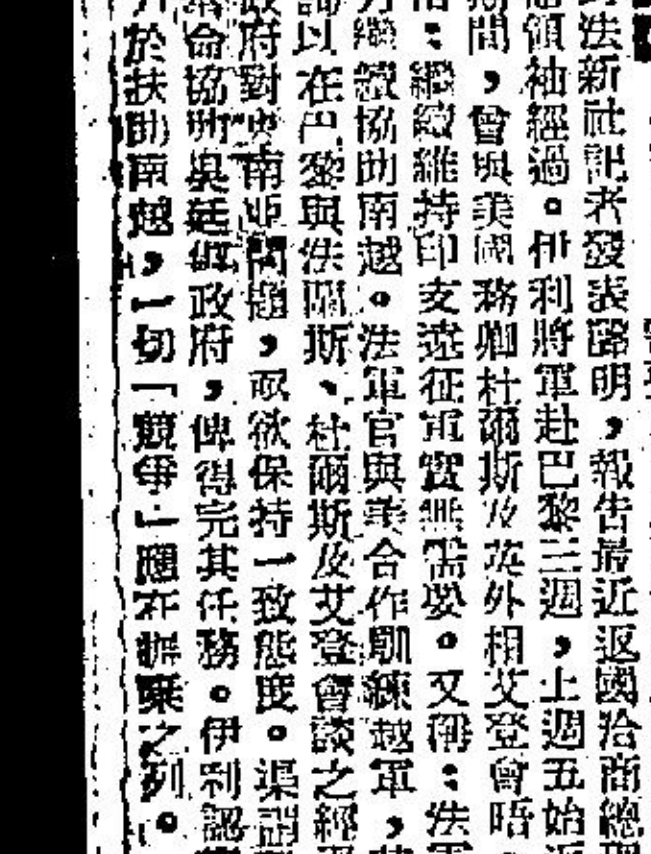 法新社記者發表聲明，報告最近返國洽商總
領袖經過。伊利將軍赴巴黎三週，上週五始返
間，曾與美國務卿杜爾斯及英外相艾登會晤，
：繼續維持印支遠征軍實無需要。又稱：法軍
繼續協助南越。法軍官與美合作訓練越軍，
以在巴黎與法國斯、杜爾斯及艾登會談之經
政府對東南亞問題，取欲保持一致態度。渠謂
命協助吳廷琰政府，俾得完其任務。伊利認
於扶助南越，一切「競爭」應在摒棄之列。